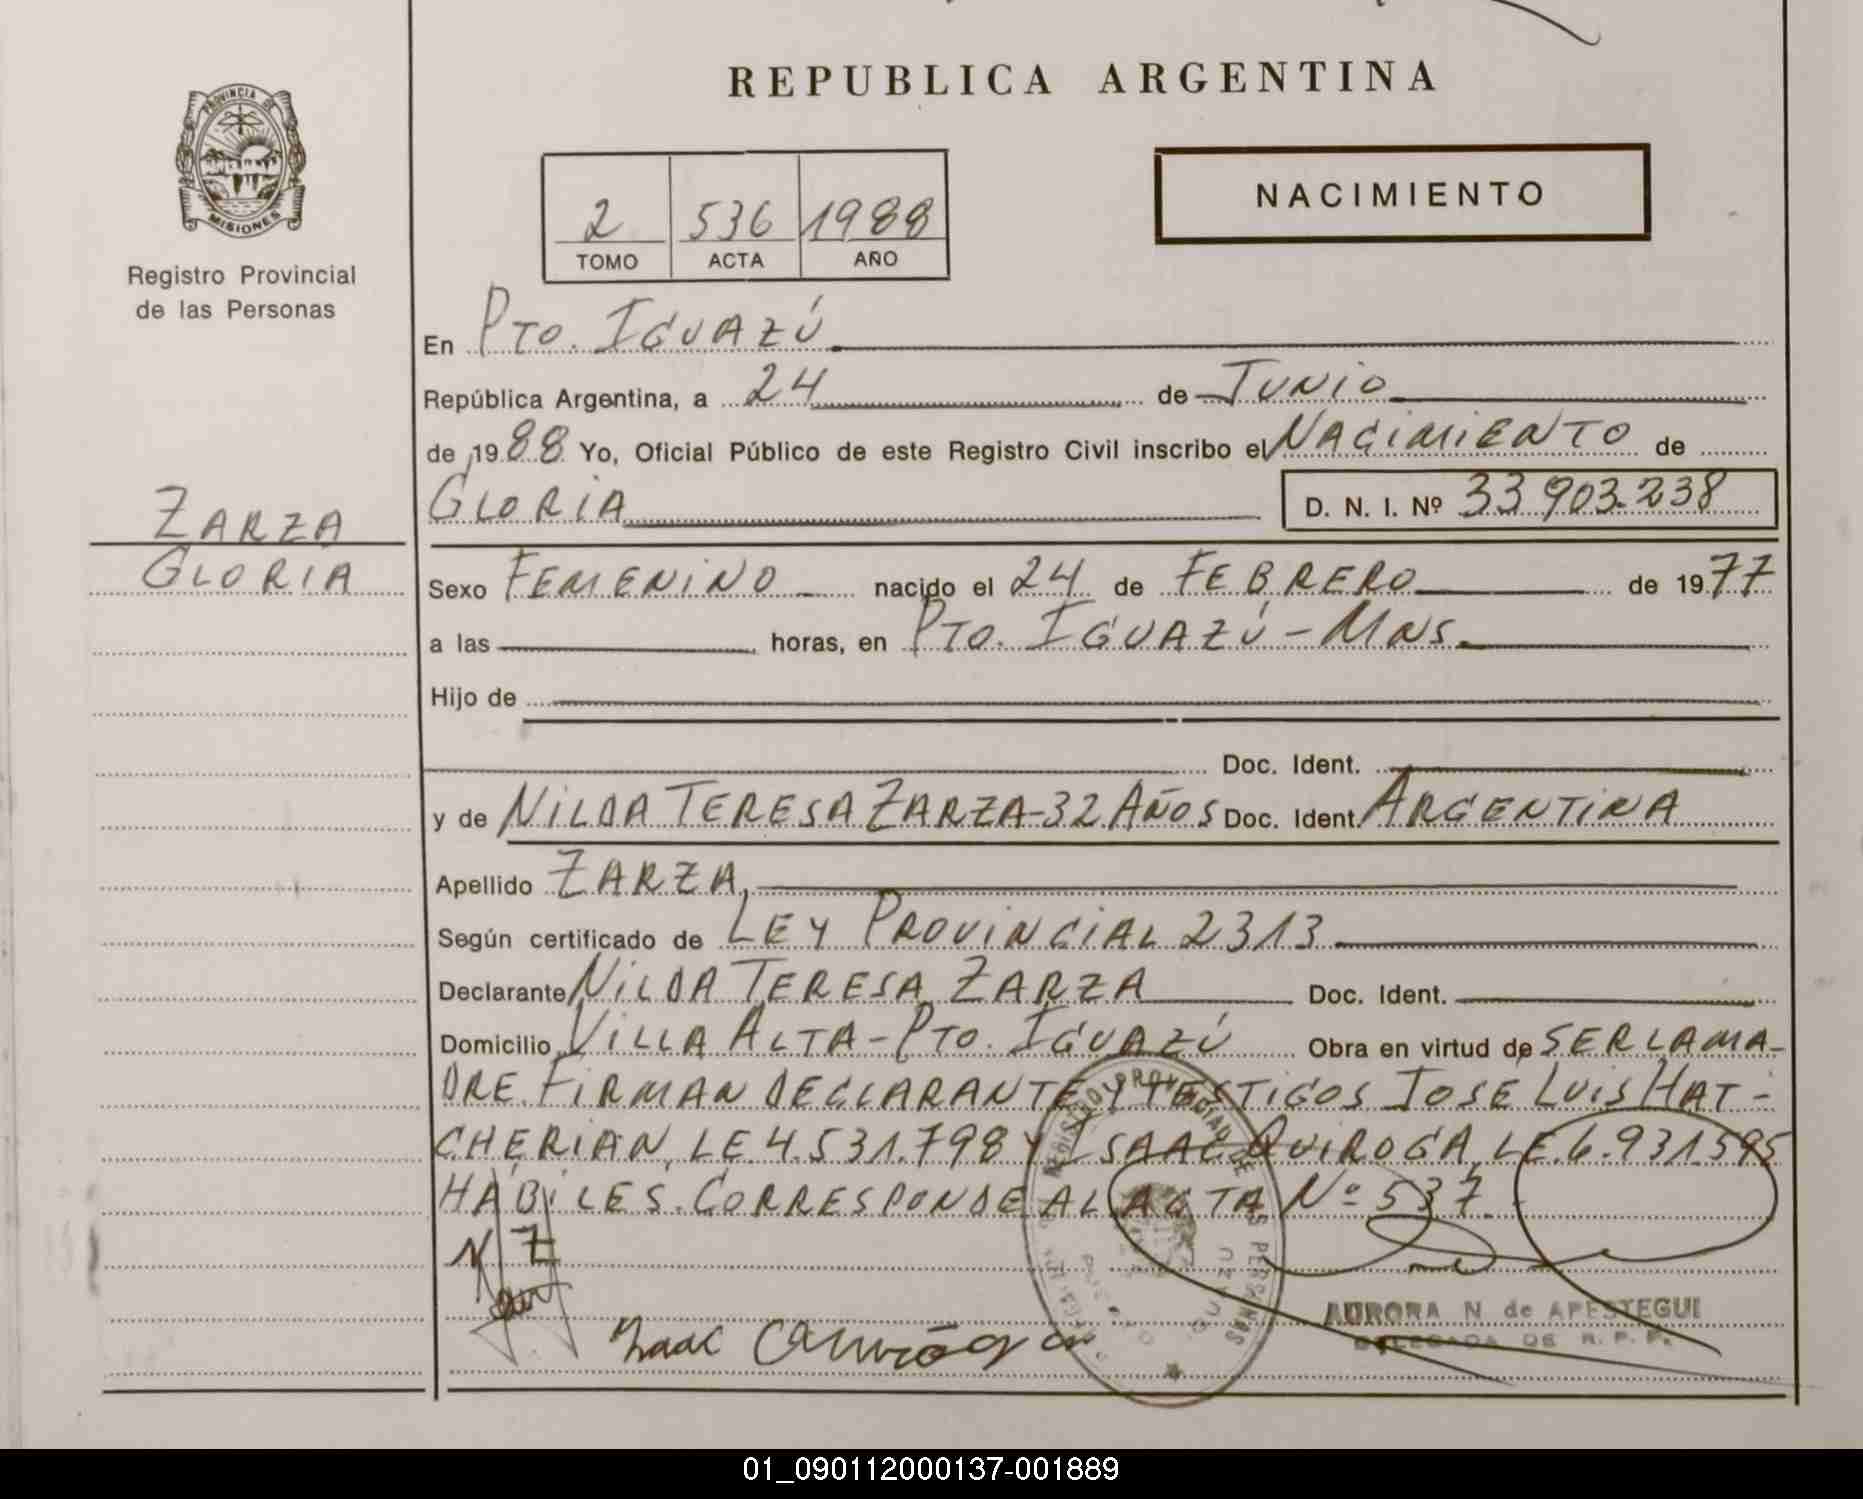 REPUBLICA ARGENTINA
PROVINCIA DE
MISIONES
Registro Provincial
de las Personas
NACIMIENTO
2 536 1988
TOMO ACTA AÑO
En Pto. IGUAZÚ
República Argentina, a 24 de JUNIO
de 1988 Yo, Oficial Público de este Registro Civil inscribo el NACIMIENTO de
GLORIA D. N. I. Nº 33.903.238
ZARZA
GLORIA
Sexo FEMENINO nacido el 24 de FEBRERO de 1977
a las horas, en PTO. IGUAZÚ - MNS.
Hijo de
Doc. Ident.
y de NILDA TERESA ZARZA-32 AÑOS Doc. Ident. ARGENTINA
Apellido ZARZA,
Según certificado de LEY PROVINCIAL 2313
Declarante NILDA TERESA ZARZA Doc. Ident.
Domicilio VILLA ALTA - PTO. IGUAZÚ Obra en virtud de SER LA MA-
DRE. FIRMAN DECLARANTE Y TESTIGOS JOSE LUIS HAT-
CHERIAN, LE.4.531.798 Y ISAAC QUIROGA, LE.6.931.595
HABILES. CORRESPONDE AL ACTA Nº 537.
N Z
AURORA N. de APESTEGUI
DELEGADA DE R. P. P.
01_090112000137-001889